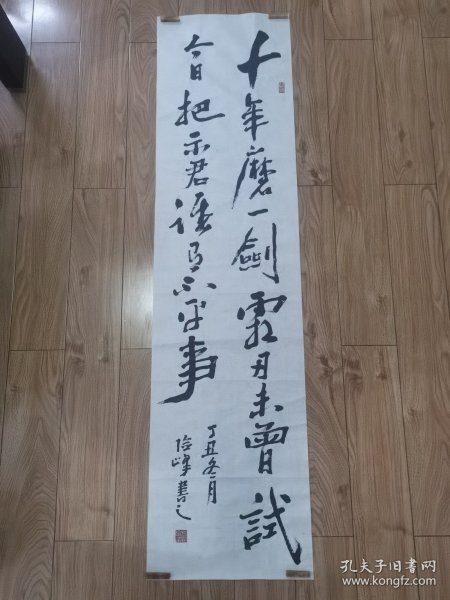 十年磨一劍霜刃未曾試
今日把示君誰有不平事
丁丑冬月
險峰書之
孔夫子旧书网
www.kongfz.com